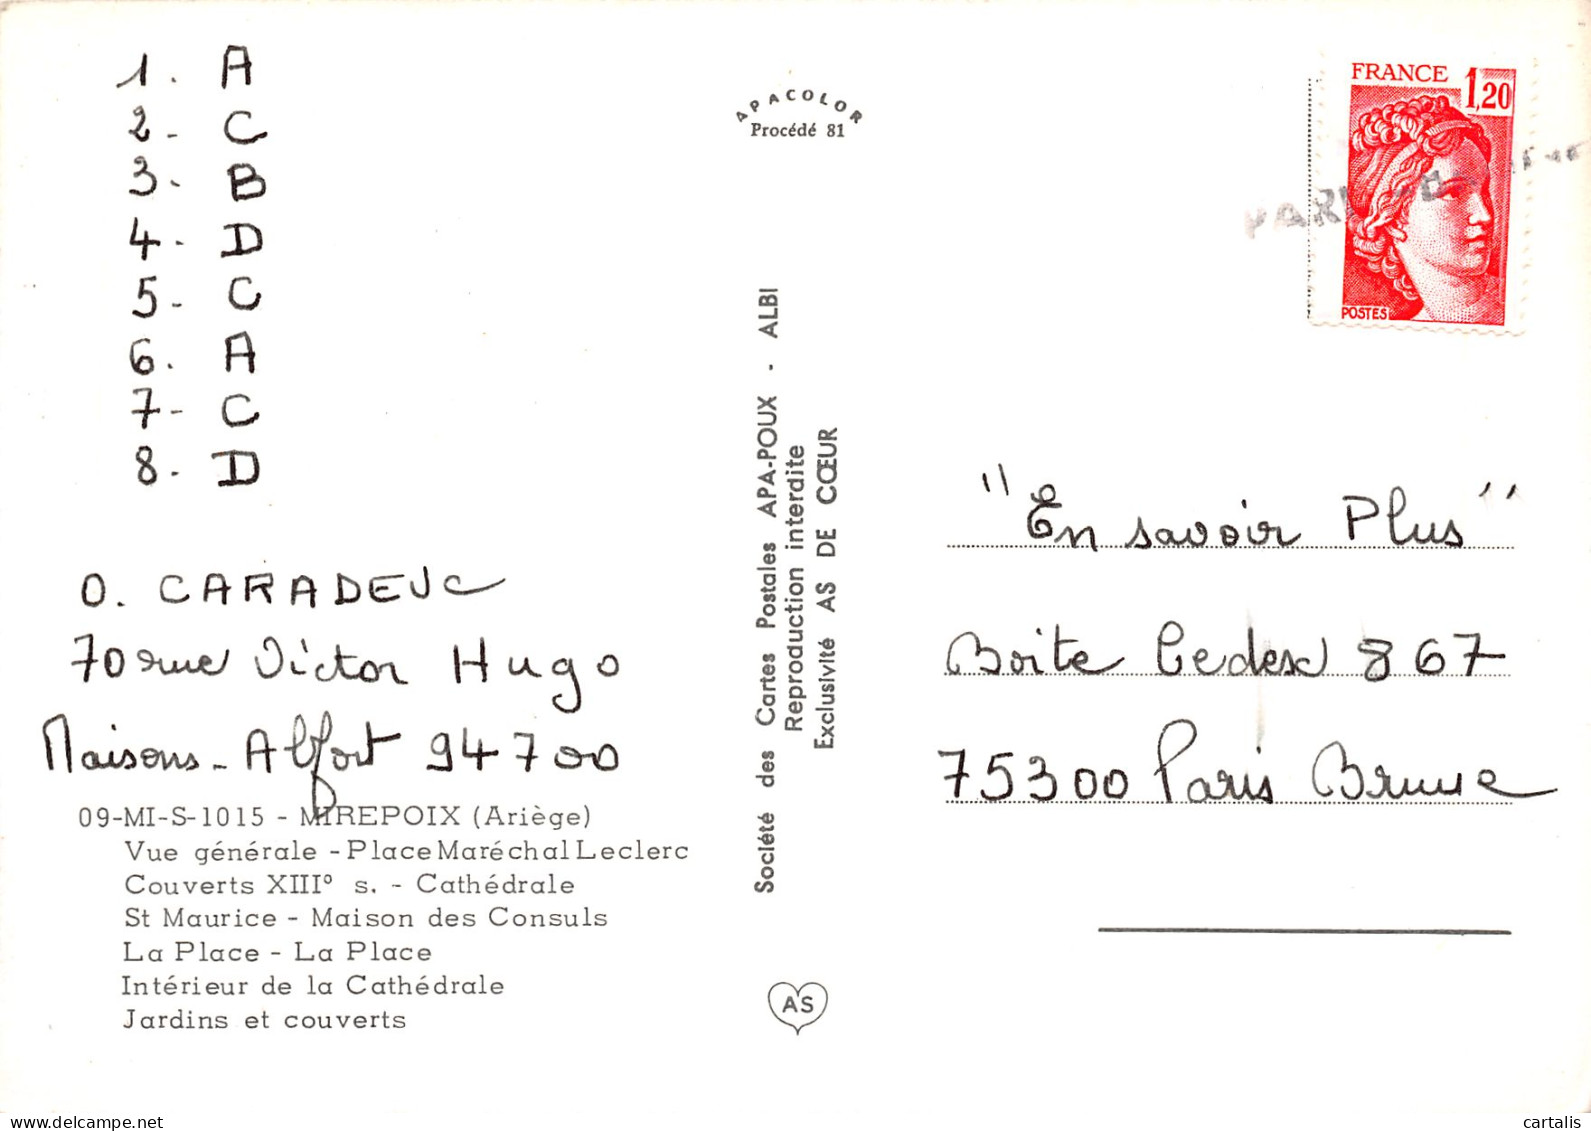 1. A
2- C
3- B
4- D
5- C
6. A
7- C
8- D
O. CARADEUC
70 rue Victor Hugo
Maisons-Alfort 94700
09-MI-S-1015 - MIREPOIX (Ariège)
Vue générale - Place Maréchal Leclerc
Couverts XIII° s. - Cathédrale
St Maurice - Maison des Consuls
La Place - La Place
Intérieur de la Cathédrale
Jardins et couverts
APACOLOR
Procédé 81
Société des Cartes Postales APA-POUX - ALBI
Reproduction interdite
Exclusivité AS DE CŒUR
AS
FRANCE 1,20
POSTES
PARIS
"En savoir Plus"
Boite Cedex 867
75300 Paris Brune
delcampe.net
cartalis